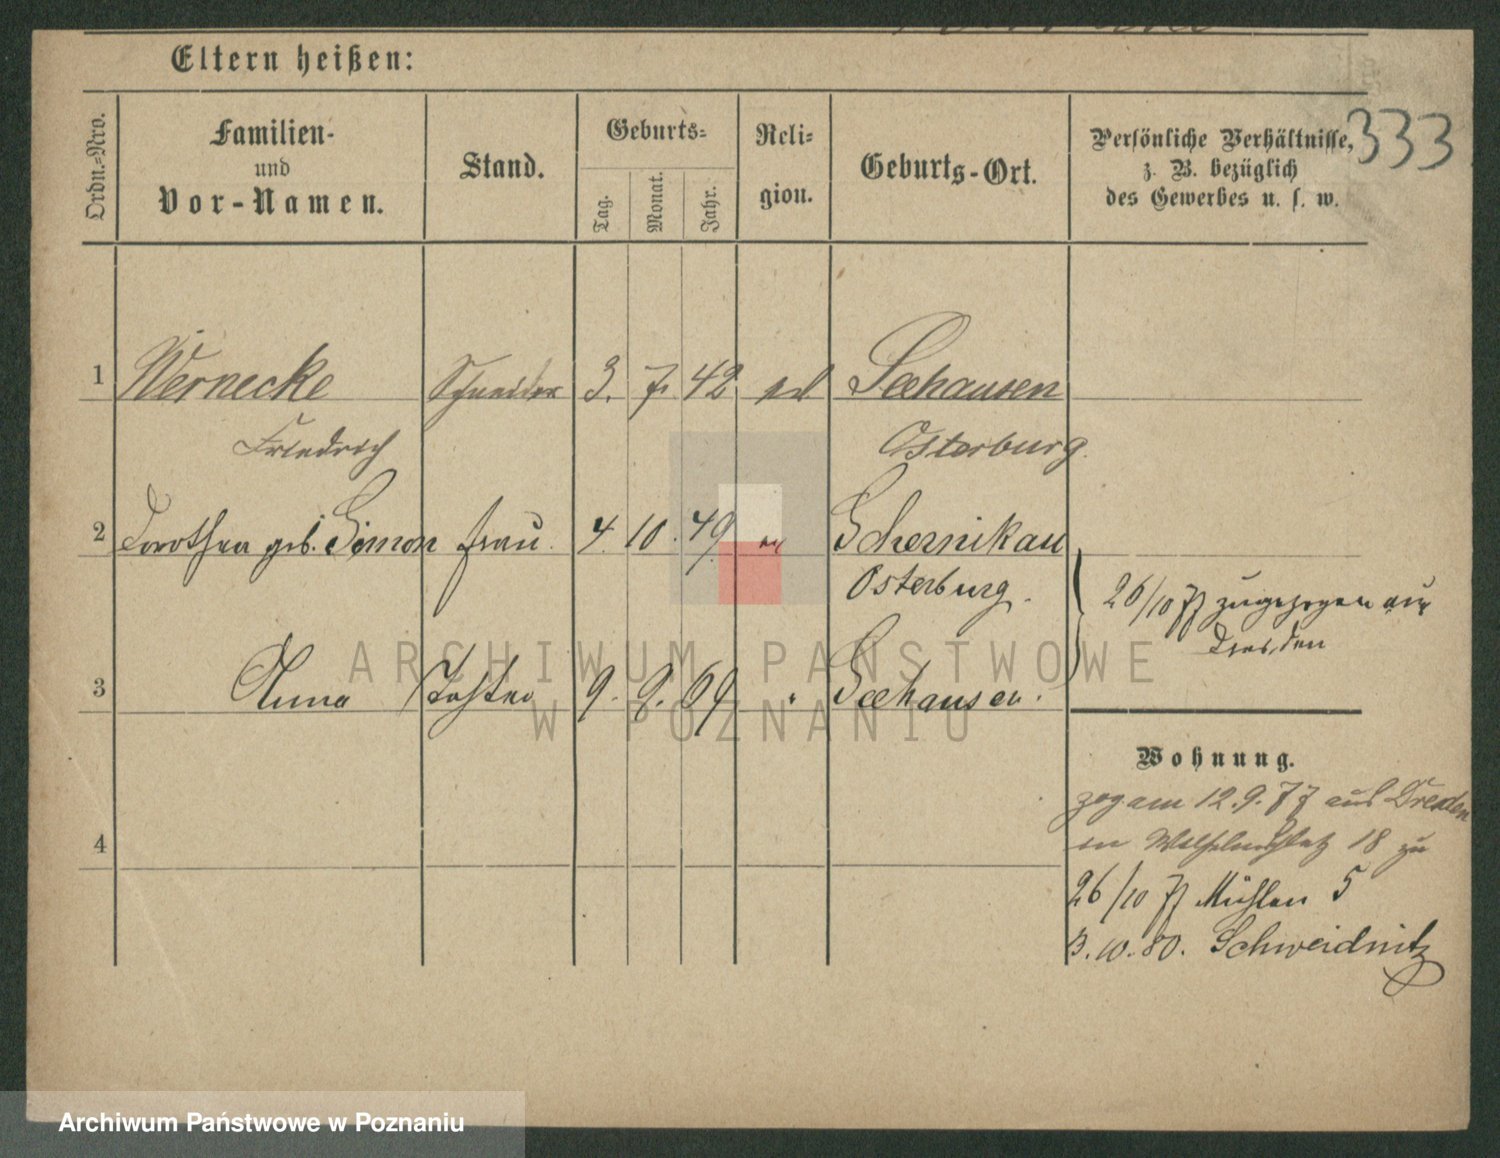 Eltern heißen:
333
Ordn.-Nro.
Familien-
und
Vor-Namen.
Stand.
Geburts-
Tag.
Monat.
Jahr.
Reli-
gion.
Geburts-Ort.
Persönliche Verhältnisse,
z. B. bezüglich
des Gewerbes u. s. w.
1 Wernecke Schneider 3. 7. 42 Seehausen
Friedrich Osterburg.
2 Dorothea geb. Simon Frau. 4. 10. 49 Schernikau
Osterburg.
26/10 77 zugezogen aus
Dresden
3 Anna Tochter 9. 9. 69 Seehausen.
Wohnung.
zog am 12. 9. 77 aus Dresden
in Wilhelmsplatz 18 zu
4
26/10 77 Mühlen 5
3. 10. 80. Schweidnitz
ARCHIWUM PAŃSTWOWE
W POZNANIU
Archiwum Państwowe w Poznaniu